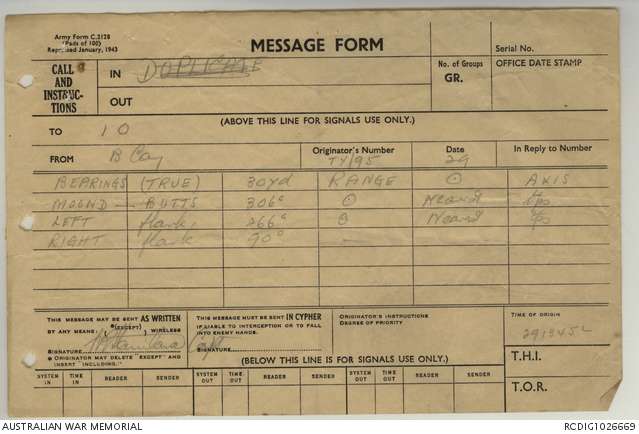 Army Form C.2128
(Pads of 100)
Reprinted January, 1943
MESSAGE FORM
Serial No.
CALL AND INSTRUC-TIONS
IN DUPLICATE
No. of Groups
GR.
OFFICE DATE STAMP
OUT
(ABOVE THIS LINE FOR SIGNALS USE ONLY.)
TO 1 O
FROM B Coy
Originator's Number
TY/95
Date
29
In Reply to Number
BEARINGS (TRUE) 30yd RANGE ⊙ AXIS
MOUND — BUTTS 306° ⊙
LEFT flank 266° ⊙
RIGHT flank 90°
THIS MESSAGE MAY BE SENT AS WRITTEN
BY ANY MEANS, *(EXCEPT) WIRELESS
SIGNATURE Capt
* ORIGINATOR MAY DELETE "EXCEPT" AND INSERT "INCLUDING."
THIS MESSAGE MUST BE SENT IN CYPHER
IF LIABLE TO INTERCEPTION OR TO FALL
INTO ENEMY HANDS.
SIGNATURE
ORIGINATOR'S INSTRUCTIONS
DEGREE OF PRIORITY
TIME OF ORIGIN
291345L
(BELOW THIS LINE IS FOR SIGNALS USE ONLY.)
T.H.I.
SYSTEM IN TIME IN READER SENDER SYSTEM OUT TIME OUT READER SENDER SYSTEM OUT TIME OUT READER SENDER
T.O.R.
AUSTRALIAN WAR MEMORIAL
RCDIG1026669